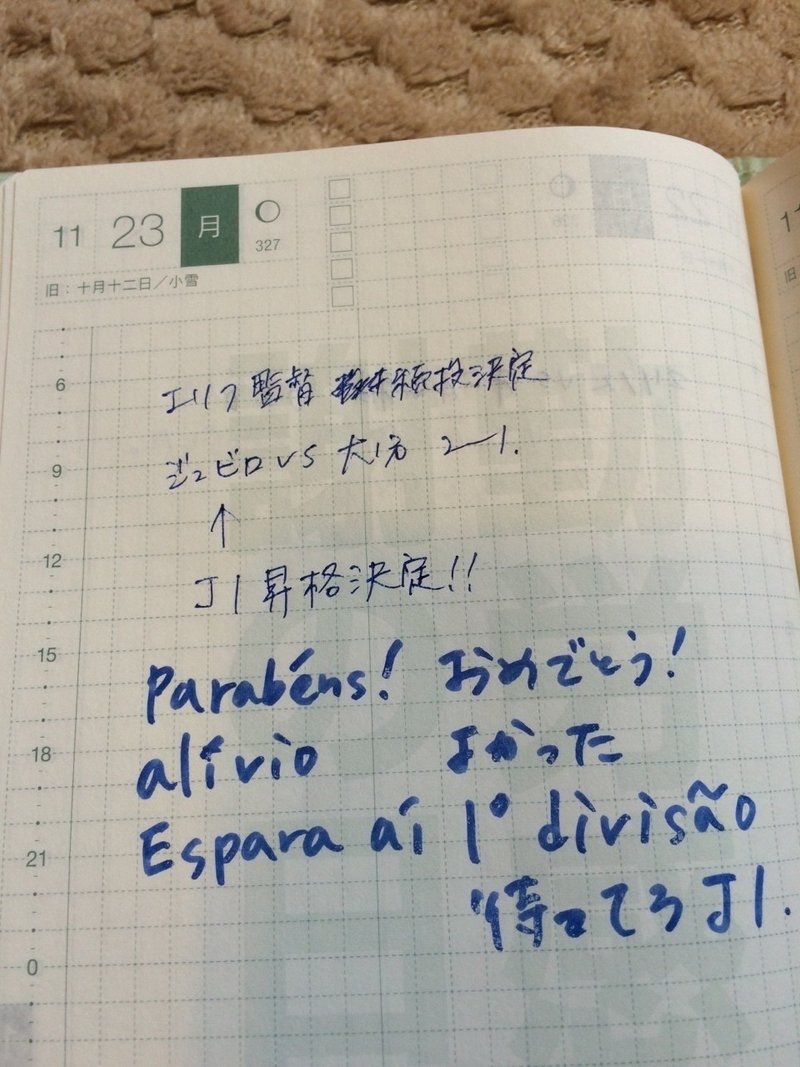 11 23 月
327
旧：十月十二日／小雪
エリク監督 続投決定
ジュビロ vs 大分 2-1.
↑
J1昇格決定!!
Parabéns! おめでとう!
alívio よかった
Espara aí 1º divisão
待ってろJ1.
6
9
12
15
18
21
0